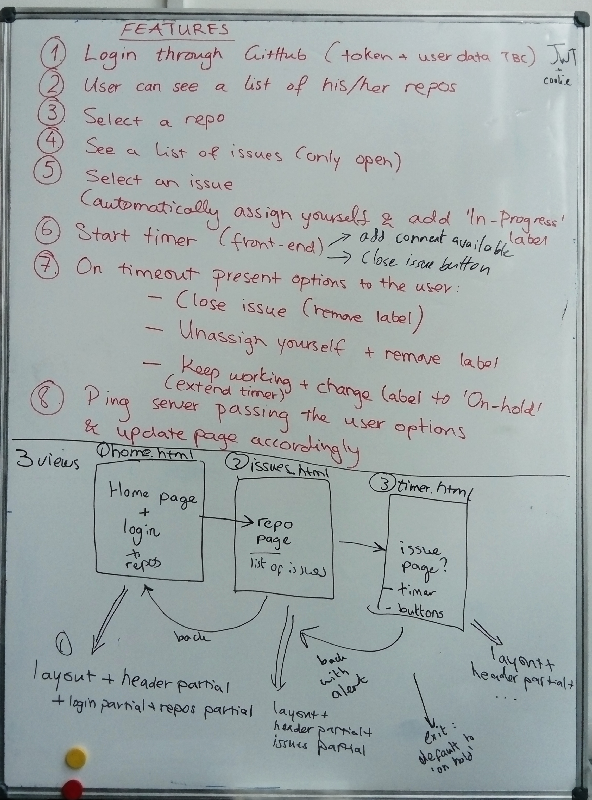 FEATURES
① Login through GitHub (token + user data TBC) JWT
cookie
② User can see a list of his/her repos
③ Select a repo
④ See a list of issues (only open)
⑤ Select an issue
(automatically assign yourself & add 'In-Progress'
label
⑥ Start timer (front-end) → add comment available
→ close issue button
⑦ On timeout present options to the user:
— Close issue (remove label)
— Unassign yourself + remove label
— Keep working + change label to 'On-hold'
(extend timer)
⑧ Ping server passing the user options
& update page accordingly
3 views
① home.html
Home page
+
login
+
repos
② issues.html
repo
page
list of issues
③ timer.html
issue
page?
- timer
- buttons
back
back
with
alert
①
layout + header partial
+ login partial + repos partial
layout +
header partial +
issues partial
exit:
default to
'on hold'
layout +
header partial +
...